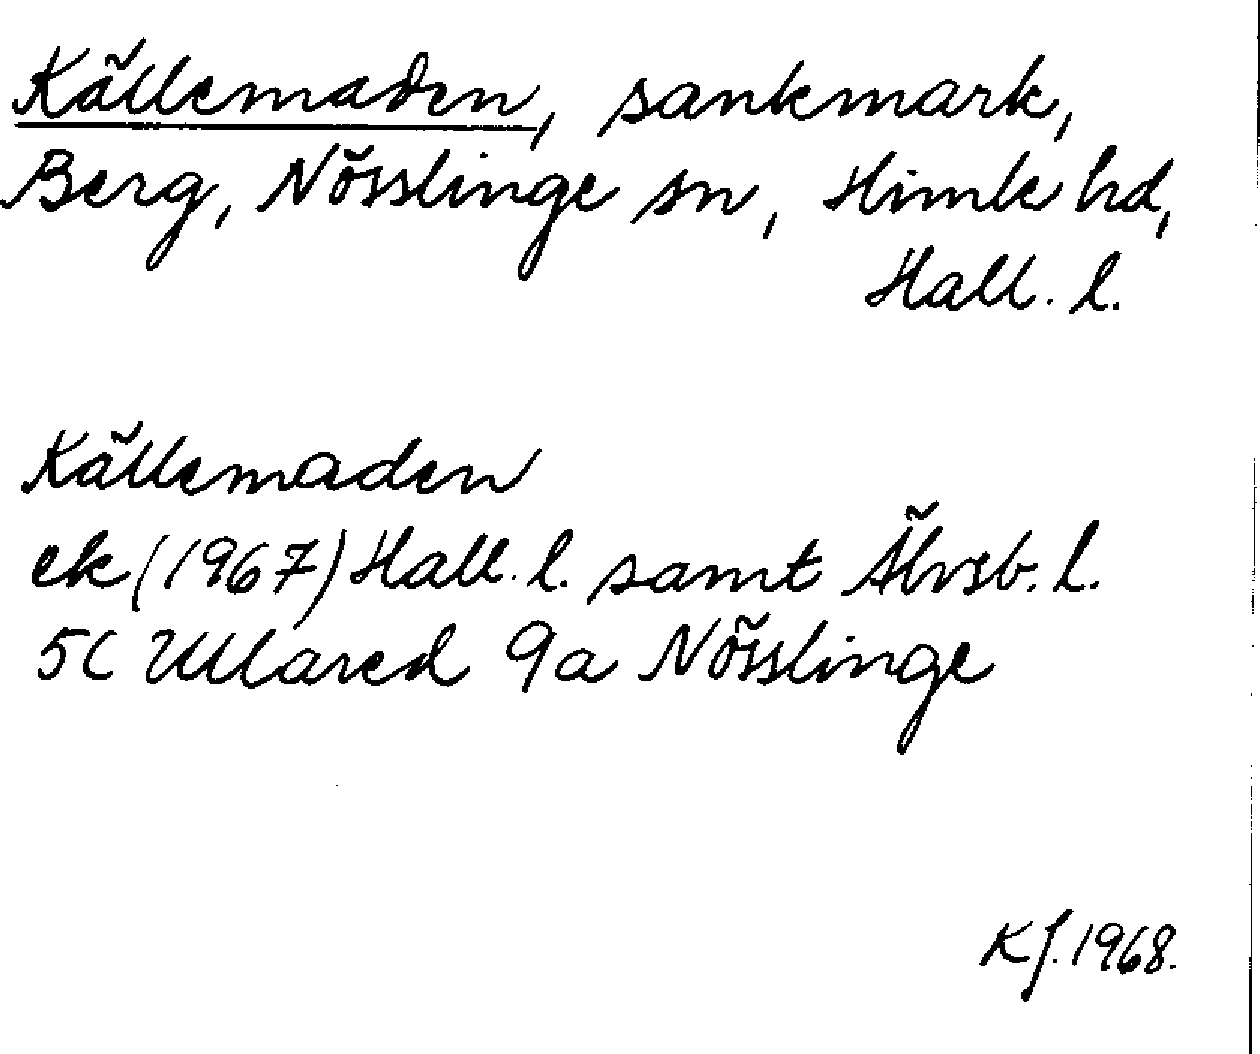 Källemaden, sankmark,
Berg, Nösslinge sn, Himle hd,
Hall. l.
Källemaden
ek (1967) Hall. l. samt Älvsb. l.
5C Ullared 9a Nösslinge
Kf. 1968.